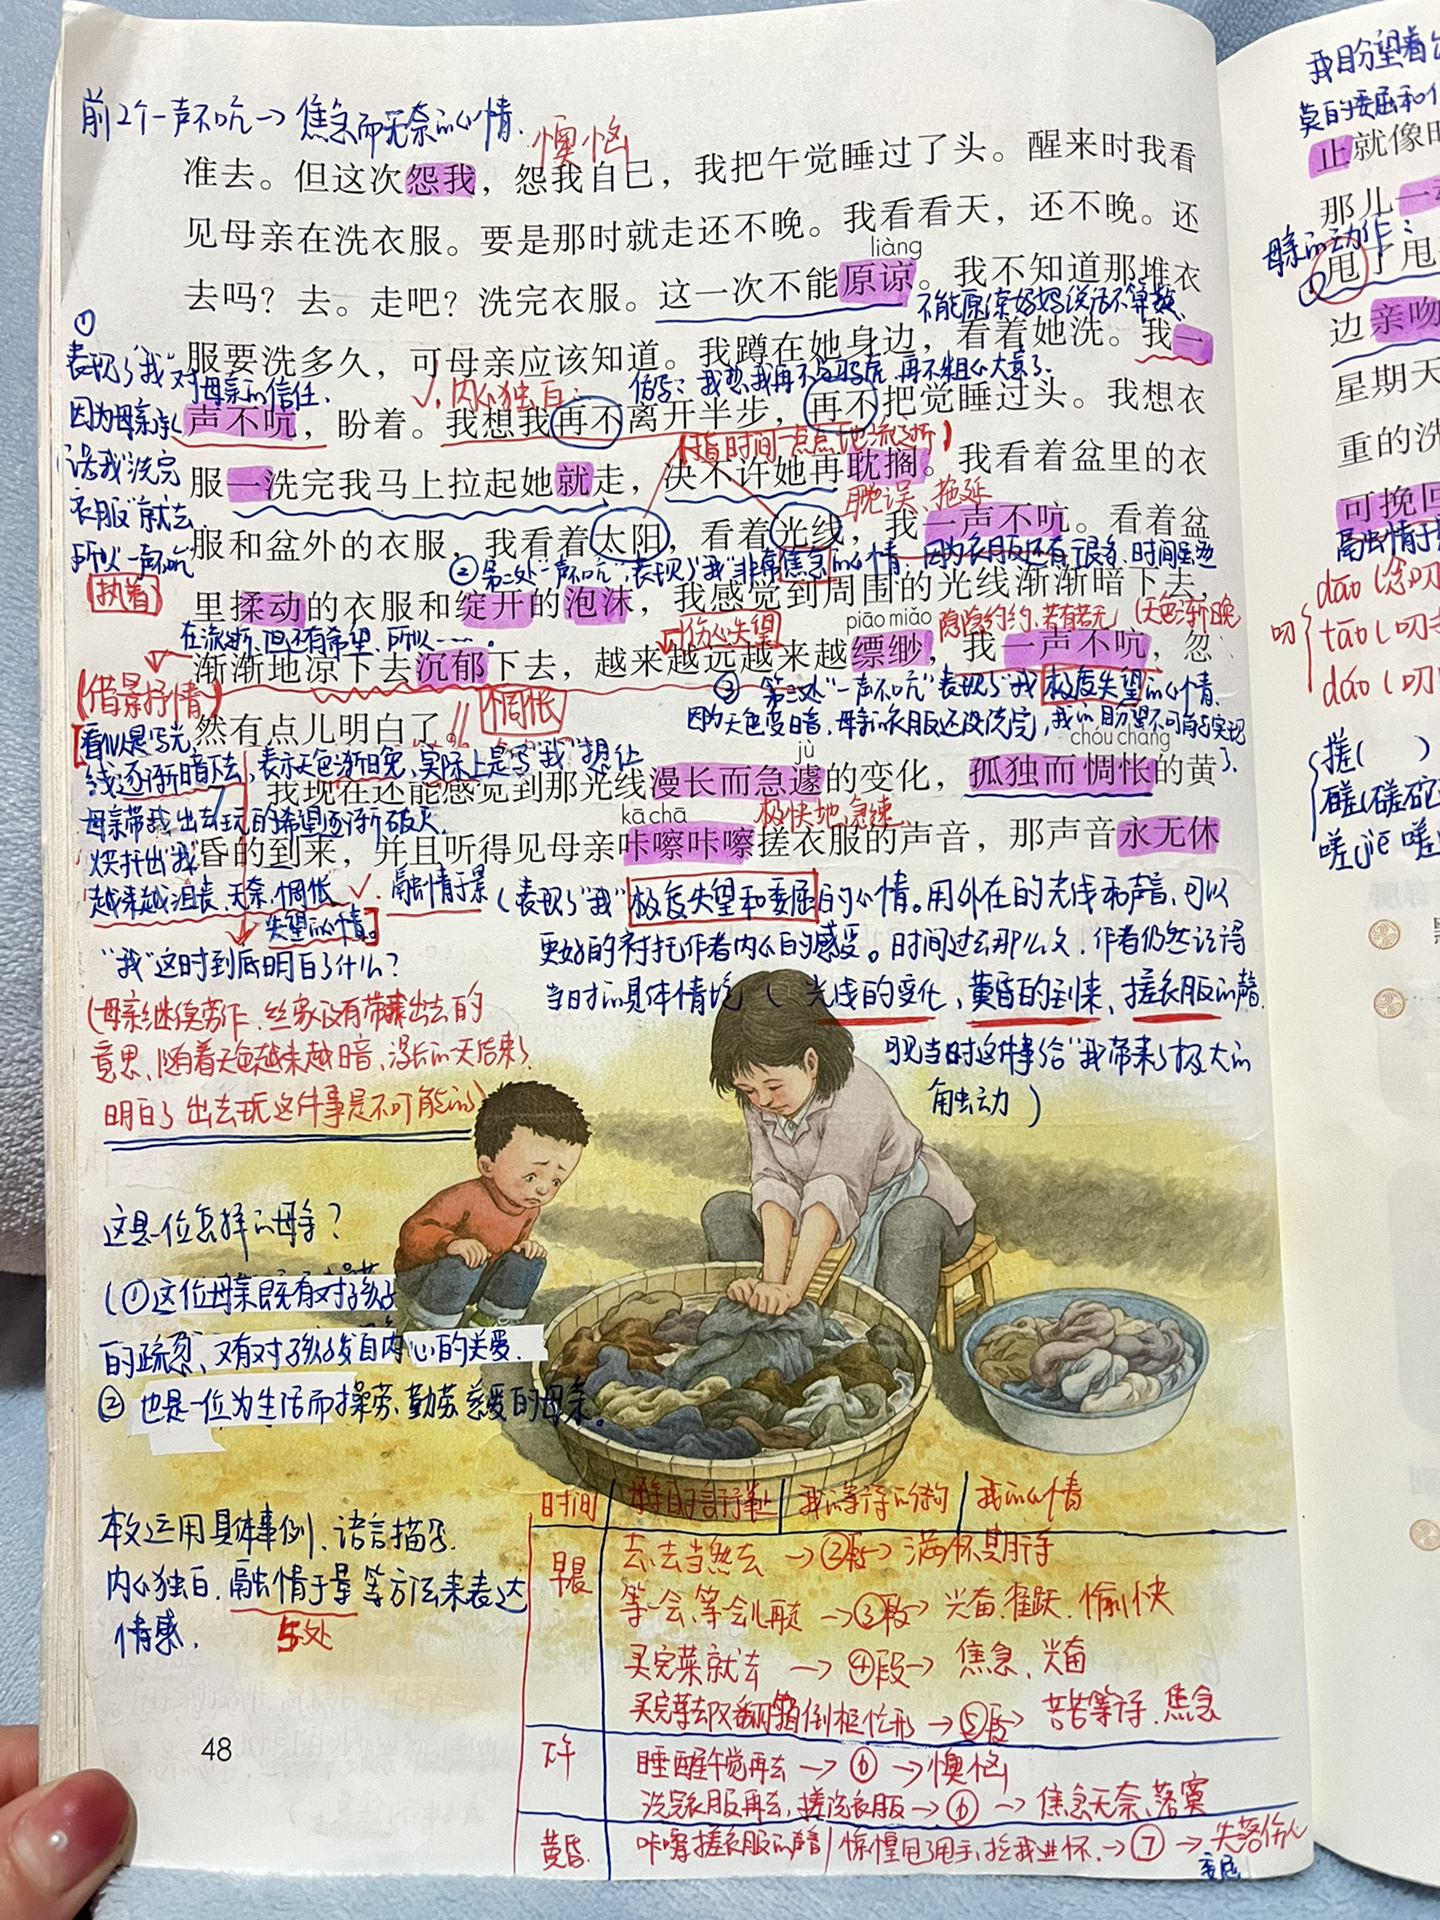 前2个一声不吭→焦急而无奈的心情.
懊恼
准去。但这次怨我，怨我自己，我把午觉睡过了头。醒来时我看
见母亲在洗衣服。要是那时就走还不晚。我看看天，还不晚。还
liàng
去吗？去。走吧？洗完衣服。这一次不能原谅。我不知道那堆衣
不能原谅妈妈说话不算数
服要洗多久，可母亲应该知道。我蹲在她身边，看着她洗。我一
①
表现了“我”对
母亲的信任.
因为母亲
话我洗完
衣服"就去.
所以一声不吭
执着
内心独白：
我想我再不
再不粗心大意了.
声不吭，盼着。我想我再不离开半步，再不把觉睡过头。我想衣
(指时间一点点地流逝)
服一洗完我马上拉起她就走，决不许她再耽搁。我看着盆里的衣
耽误、拖延
服和盆外的衣服，我看着太阳，看着光线，我一声不吭。看着盆
②第二处“一声不吭”表现了“我”非常焦急的心情，因为衣服还有很多，时间
里揉动的衣服和绽开的泡沫，我感觉到周围的光线渐渐暗下去，
在流逝,但还有希望,所以……
伤心失望
piāo miǎo
隐隐约约、若有若无
(天色渐晚
渐渐地凉下去沉郁下去，越来越远越来越缥缈，我一声不吭，忽
③第三处“一声不吭”表现了“我”极度失望的心情.
因为天色变暗，母亲的衣服还没洗完，我的盼望不可能实现
了.
(借景抒情)
惆怅
然有点儿明白了。
看似是写光
线逐渐暗下去,表示天色渐晚,实际上是写“我”想让
母亲带我出去玩的希望逐渐破灭.
烘托出“我”
越来越沮丧、无奈、惆怅
失望的心情。
jù
chóu chàng
我现在还能感觉到那光线漫长而急遽的变化，孤独而惆怅的黄
kā chā
极快地、急速
昏的到来，并且听得见母亲咔嚓咔嚓搓衣服的声音，那声音永无休
融情于景
(表现了“我”极度失望和委屈的心情。用外在的光线和声音,可以
更好的衬托作者内心的感受。时间过去那么久,作者仍然记得
当日的具体情境(光线的变化、黄昏的到来、搓衣服的声音.
可见当时这件事给“我”带来了极大的
触动)
“我”这时到底明白了什么?
(母亲继续劳作.丝毫没有带我出去的
意思、随着天色越来越暗、漫长的一天后来了.
明白了出去玩这件事是不可能的)
这是一位怎样的母亲?
(①这位母亲既有对孩子
的疏忽、又有对孩子发自内心的关爱.
②也是一位为生活而操劳、勤劳、慈爱的母亲。
本文运用具体事例、语言描写.
内心独白.融情于景等方法来表达
情感.
5处
时间
母亲的言行举止
我等待的
我的心情
早晨
去,去当然去→②段→满怀期待
等一会、等会儿再走→③段→兴奋、雀跃、愉快
买完菜就去→④段→焦急、兴奋
买完菜去又翻箱倒柜忙形→⑤段→苦苦等待、焦急
下午
睡醒午觉再去→⑥→懊恼
洗完衣服再去,搓洗衣服→⑥→焦急无奈、落寞
黄昏.
咔嚓搓衣服的声音/惊惶甩了甩手、拉我进怀.→⑦→失落伤心
委屈
48
我盼望着
莫的委屈和
止就像
那儿一动
母亲的动作：
①
甩了甩
边亲吻
星期天
重的洗
可挽回
融情于
叨
dāo(念叨
tāo(叨
dáo(叨
搓( )
磋(磋砣
嗟(jiē 嗟